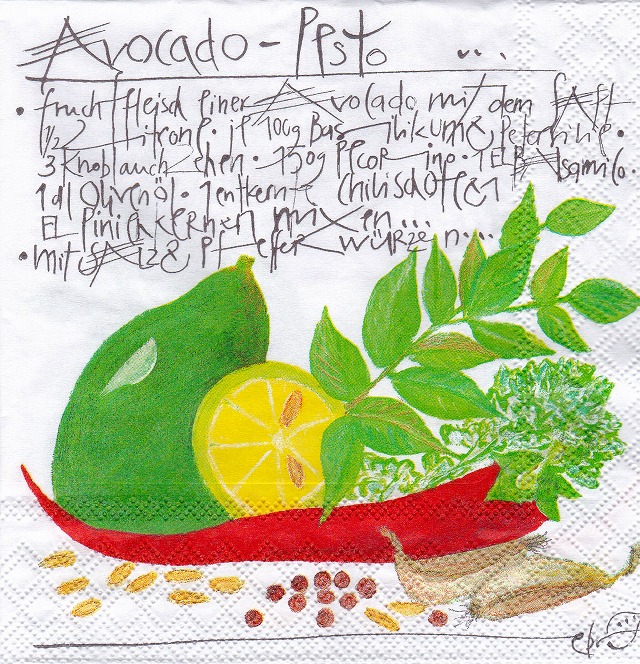 Avocado - Pesto ...
• fruchtfleisch einer Avocado mit dem Saft
1/2 Zitrone • je 100g Basilikum & Petersilie •
3 Knoblauchzehen • 150g Pecorino • 1 EL Balsamico •
1 dl Olivenöl • 1 entkernte Chilischote & 1
EL Pinienkernen mixen ...
• mit Salz & Pfeffer würzen ...